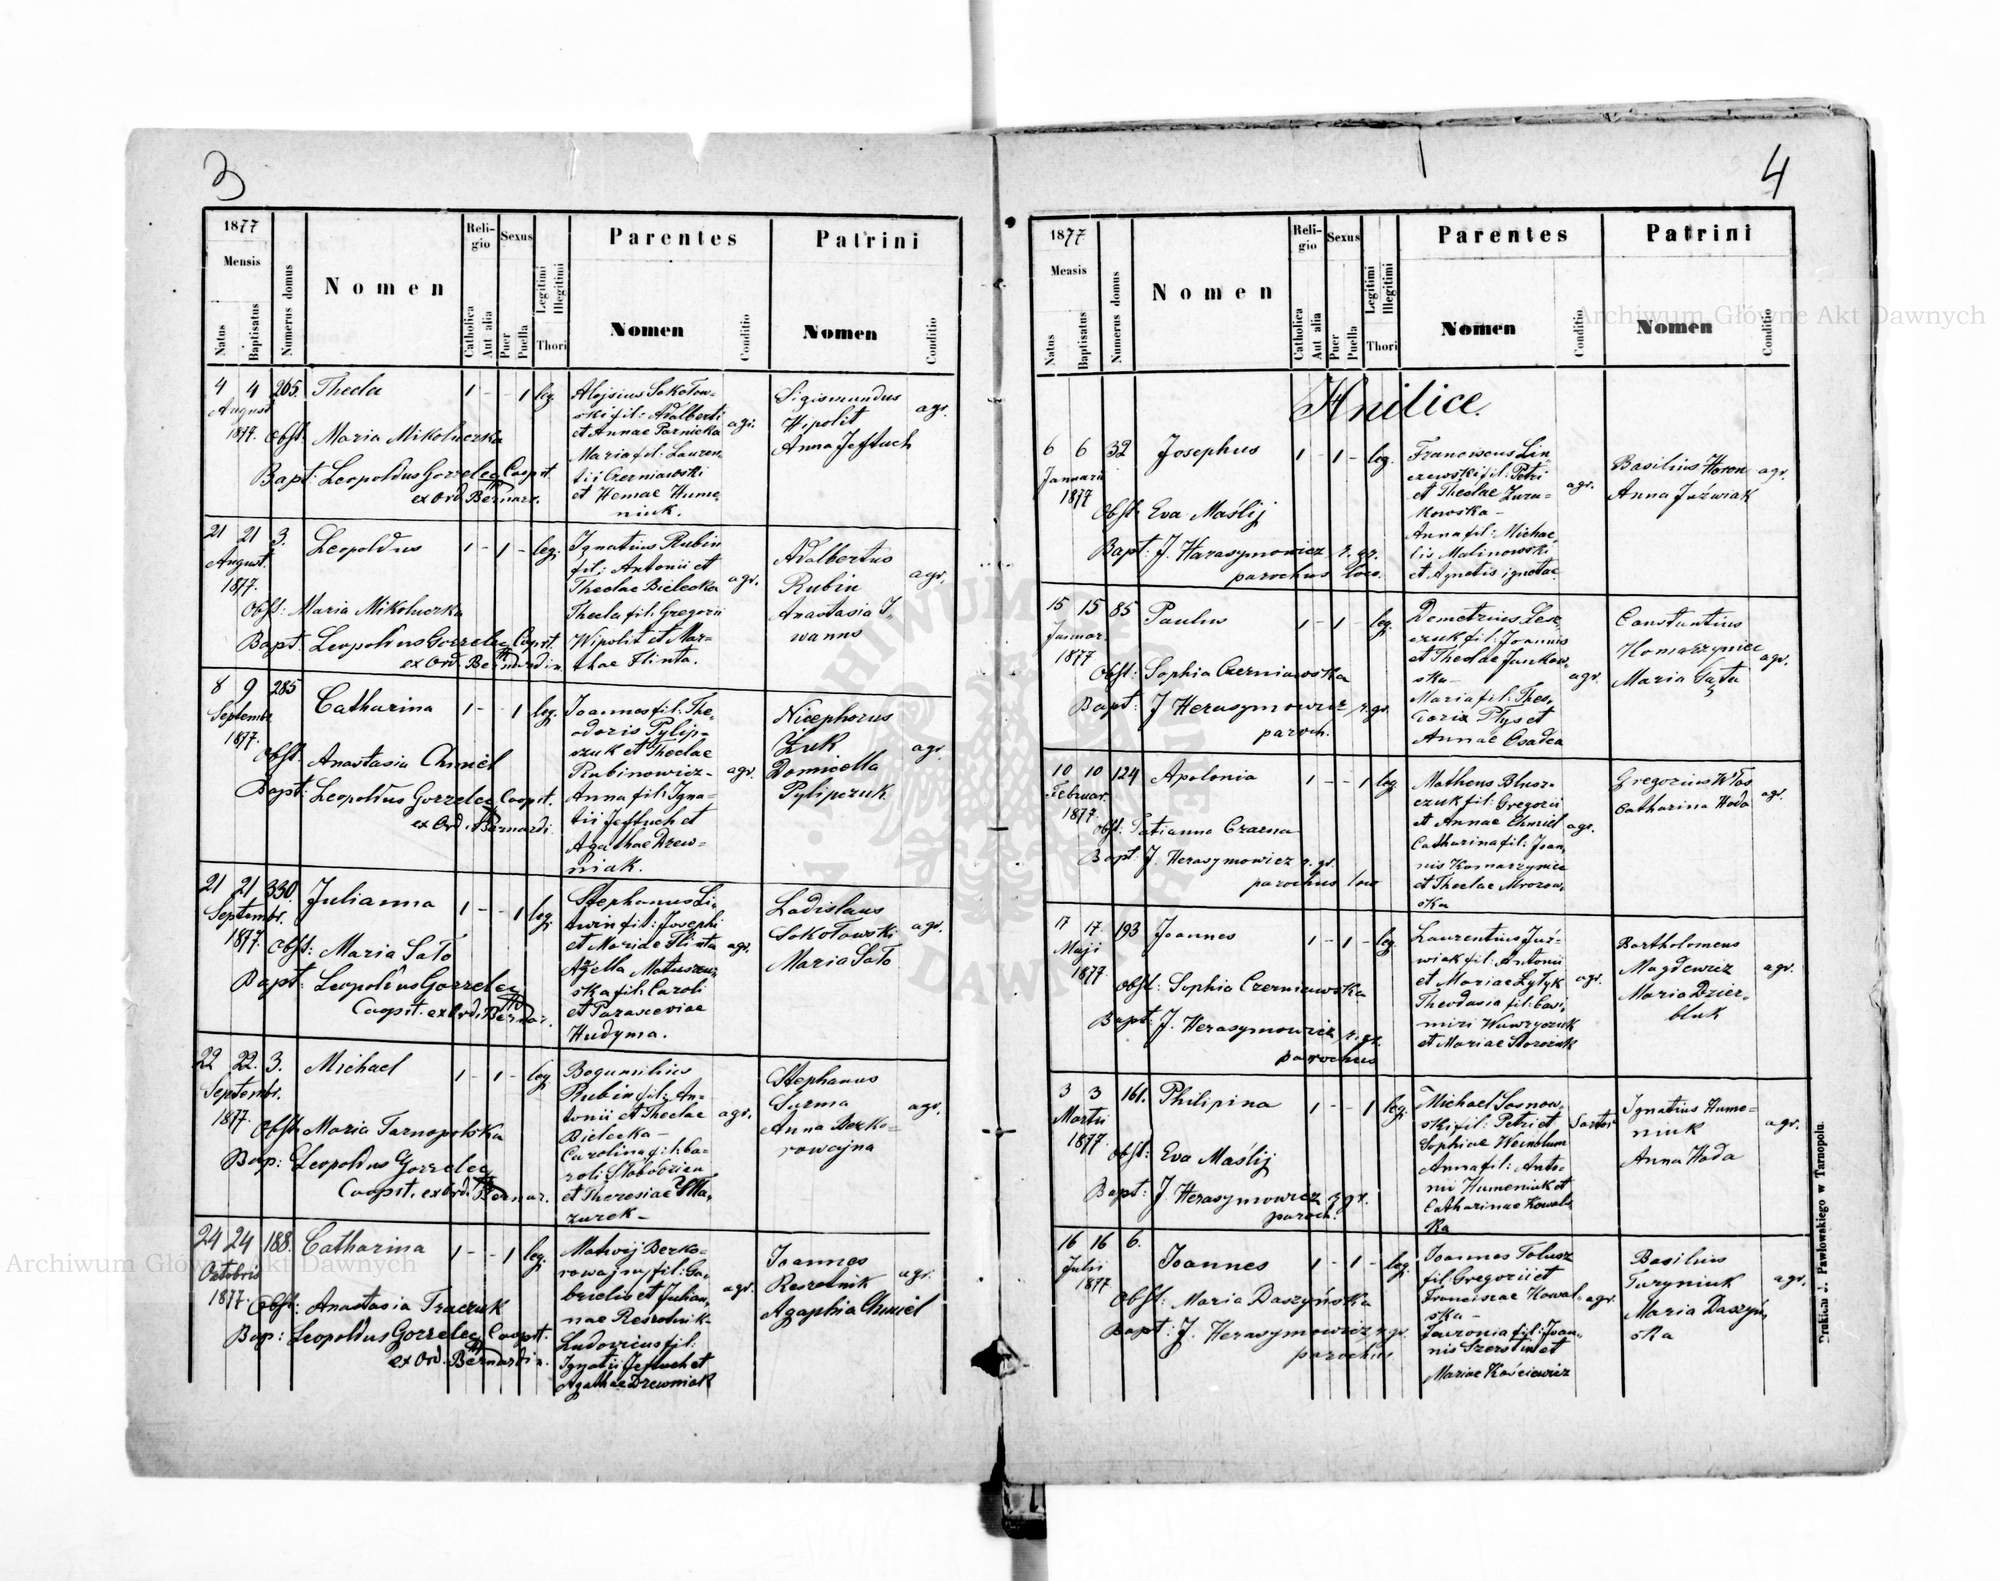 3
1877
Mensis
Natus
Baptisatus
Numerus domus
Nomen
Religio
Catholica
Aut alia
Sexus
Puer
Puella
Legitimi
Illegitimi
Thori
Parentes
Nomen
Conditio
Patrini
Nomen
Conditio
4 4 265. Thecla 1 - - 1 leg.
August
1877.
Obst. Maria Mikoluczka
Bapt: Leopoldus Gorzelec Coopt.
ex Ord. Bernar.
Alojsius Sokołow-
ski fil: Adalberti
et Annae Parnicka
Maria fil: Lauren
tii Czerniawski
et Hemae Hume-
niuk.
agr.
Sigismundus
Hipolit
Anna Jeftuch
agr.
21 21 3. Leopoldus 1 - 1 - leg.
August.
1877.
Obst: Maria Mikoluczka
Bapt: Leopoldus Gorzelec Coopt.
ex Ord. Bernardin.
Ignatius Rubin
fil: Antonii et
Theclae Bielecka
Thecla fil: Gregorii
Hipolit et Mar-
thae Flinta.
agr.
Adalbertus
Rubin
Anastasia I-
wanns
agr.
8 9 285 Catharina 1 - - 1 leg.
Septembr
1877.
Obst. Anastasia Chmiel
Bapt: Leopoldus Gorzelec Coopt.
ex Ord. Bernardi.
Joannes fil: The-
odoris Pylip-
czuk et Theclae
Rubinowicz-
Anna fil: Igna-
tii Jeftuch et
Agathae Drew-
niak.
agr.
Nicephorus
Żuk
Domicella
Pylipczuk
agr.
21 21 330. Julianna 1 - - 1 leg.
Septembr.
1877.
Obst: Maria Sało
Bapt: Leopoldus Gorzelec
Coopt. ex Ord. Bernar.
Stephanus Li-
twin fil: Josephi
et Mariae Flinta
Azella Matuszew-
ska fil: Caroli
et Parasceviae
Hudyma.
agr.
Ladislaus
Sokołowski
Maria Sało
agr.
22 22. 3. Michael 1 - 1 - leg
Septembr.
1877.
Obst: Maria Tarnopolska
Bap: Leopoldus Gorzelec
Coopt. ex Ord. Bernar.
Bogumilius
Rubin fil: An-
tonii et Theclae
Bielecka -
Carolina fil: Ca-
roli Słobodzien
et Theresiae Ma-
zurek -
agr.
Stephanus
Surma
Anna Berko-
rowajna
agr.
24 24 188. Catharina 1 - - 1 leg.
Octobris
1877.
Obst: Anastasia Traczuk
Bap: Leopoldus Gorzelec Coopt.
ex Ord. Bernardin.
Matwij Berko-
rowajny fil: Ga-
brielis et Julian-
nae Reszetnik-
Ludovicus fil:
Ignatii Jeftuch et
Agathae Drewniak
agr.
Joannes
Reszetnik
Agaphia Chmiel
agr.
4
1877
Mensis
Natus
Baptisatus
Numerus domus
Nomen
Religio
Catholica
Aut alia
Sexus
Puer
Puella
Legitimi
Illegitimi
Thori
Parentes
Nomen
Conditio
Patrini
Nomen
Conditio
Hnilice.
6 6 32 Josephus 1 - 1 - leg.
Januarii
1877
Obst. Eva Maślij
Bapt: J. Harasymowicz r. gr.
parochus loco.
Franciscus Lin-
czewski fil: Petri
et Theclae Żura-
kowska -
Anna fil: Michae-
lis Malinowski
et Agnetis ignotae
agr.
Basilius Horon
Anna Juźwiak
agr.
15 15 85 Paulus 1 - 1 - leg.
Januar.
1877
Obst: Sophia Czerniawska
Bapt: J Herasymowicz r. gr.
paroch.
Demetrius Les-
czuk fil: Joannis
et Theclae Jankow-
ska -
Maria fil: Theo-
dori Płys et
Annae Osadca
agr.
Constantius
Homarzynicz
Maria Gęta
agr.
10 10 124 Apolonia 1 - - 1 leg
Februar.
1877.
Obst: Tatianna Czarna
Bapt: J. Herasymowicz r. gr.
parochus loco
Matheus Blusz-
czuk fil: Gregorii
et Annae Chmiel
Catharina fil: Joan-
nis Komarzynicz
et Theclae Mrozow-
ska
agr.
Gregorius Włas
Catharina Hoda
agr.
17 17 193 Joannes 1 - 1 - leg.
Maji
1877
Obst: Sophia Czerniawska
Bapt: J. Herasymowicz r. gr.
parochus
Laurentius Juź-
wiak fil: Antonii
et Mariae Łytyk
Theodasia fil: Casi-
miri Wawryczuk
et Mariae Storozuk
agr.
Bartholomeus
Magdewicz
Maria Dzier-
bluk
agr.
3 3 161. Philipina 1 - - 1 leg.
Martii
1877.
Obst: Eva Maślij
Bapt: J. Herasymowicz r. gr.
paroch.
Michael Sosnow-
ski fil: Petri et
Sophiae Weinblum
Anna fil: Anto-
nii Humeniuk et
Catharinae Kowal-
ska
Sartor
Ignatius Hume-
niuk
Anna Hoda
agr.
16 16 6. Joannes 1 - 1 - leg.
Julii
1877
Obst: Maria Daszyńska
Bapt: J. Herasymowicz r. gr.
parochus
Joannes Tolusz
fil: Gregorii et
Franciscae Kowal-
ska -
Fevronia fil: Joan-
nis Szerstiu et
Mariae Kościewicz
agr.
Basilius
Turyniuk
Maria Daszyń-
ska
agr.
Drukiem J. Pawłowskiego w Tarnopolu.
Archiwum Główne Akt Dawnych
Archiwum Główne Akt Dawnych
ARCHIWUM GŁÓWNE AKT DAWNYCH